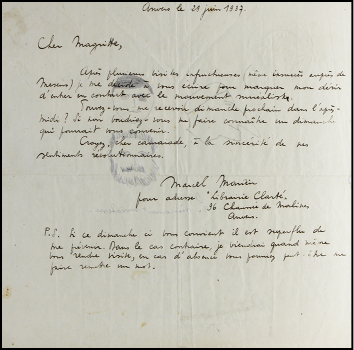 Anvers le 21 juin 1937.
Cher Magritte,
Après plusieurs visites infructueuses, même insuccès auprès de
Mesens) je me décide à vous écrire pour marquer mon désir
d'entrer en contact avec le mouvement surréaliste.
Pouvez-vous me recevoir dimanche prochain dans l'après-
midi? Si non voudriez-vous me faire connaître un dimanche
qui pourrait vous convenir.
Croyez, cher camarade, à la sincérité de mes
sentiments révolutionnaires.
Marcel Mariën
pour adresse "Librairie Clarté.
36 Chaussée de Malines
Anvers.
P.S. Si ce dimanche ci vous convient il est superflu de
me prévenir. Dans le cas contraire, je viendrai quand même
vous rendre visite, en cas d'absence vous pourriez peut-être me
faire remettre un mot.